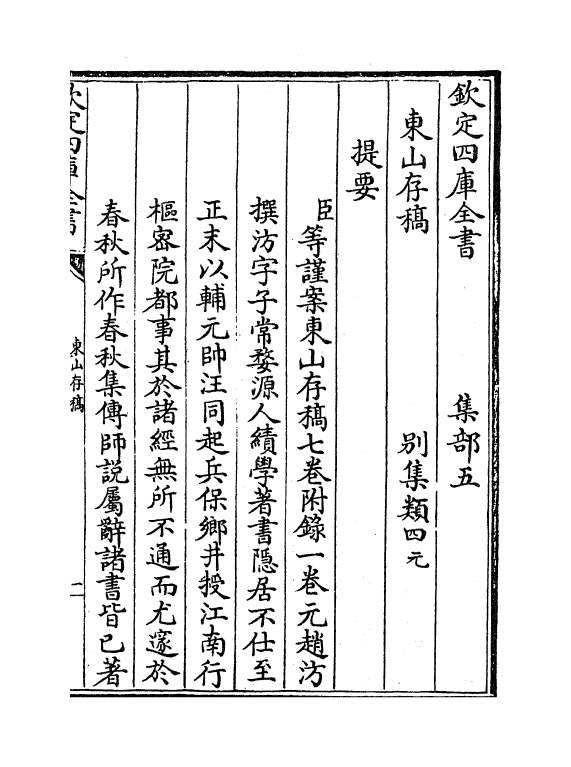 欽定四庫全書 集部五
東山存稿 別集類四元
提要
臣等謹案東山存稿七卷附錄一卷元趙汸
撰汸字子常婺源人績學著書隱居不仕至
正末以輔元帥汪同起兵保鄉井授江南行
樞密院都事其於諸經無所不通而尤邃於
春秋所作春秋集傳師說屬辭諸書皆已著
欽定四庫全書 東山存稿 二